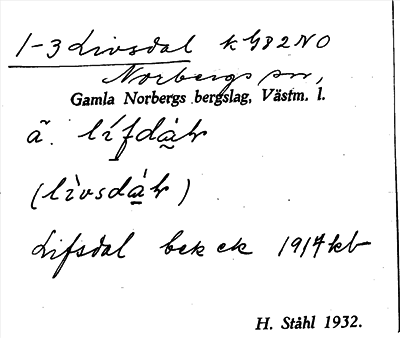 1-3 Livsdal k 982 NO
Norbergs sn,
Gamla Norbergs bergslag, Västm. l.
ä.
(
)
Lifsdal bek ek 1914 kb
H. Ståhl 1932.